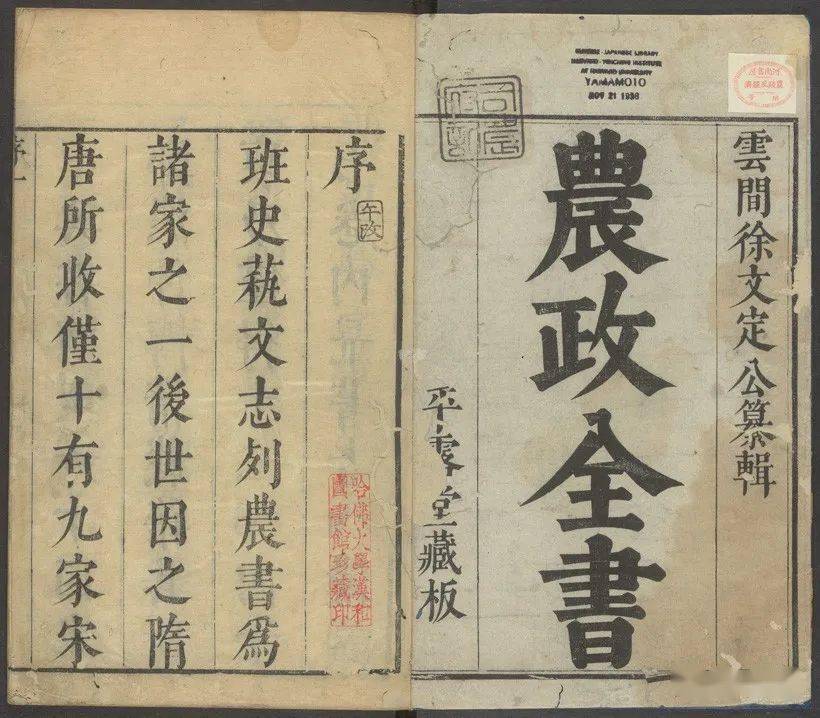 CHINESE-JAPANESE LIBRARY
HARVARD-YENCHING INSTITUTE
AT HARVARD UNIVERSITY
YAMAMOTO
NOV 21
雲間徐文定公纂輯
農政全書
平露堂藏板
序
哈佛大學漢和
圖書館珍藏印
班史蓺文志列農書爲
諸家之一後世因之隋
唐所收僅十有九家宋
序一